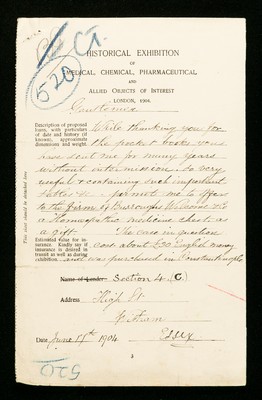 Ct.
520
HISTORICAL EXHIBITION
OF
MEDICAL, CHEMICAL, PHARMACEUTICAL,
AND
ALLIED OBJECTS OF INTEREST
LONDON, 1904.
Gentlemen
Description of proposed
loan, with particulars
of date and history (if
known), approximate
dimensions and weight.
While thanking you for
the pocket books you
have sent me for many years
without intermission, so very
useful & containing such important
tables &c. permit me to offer
to the firm of Burroughs Wellcome & Co
a Homœopathic medicine chest as
a gift. The case in question
Estimated value for in-
surance. Kindly say if
insurance is desired in
transit as well as during
exhibition.
cost about £30 English money
and was purchased in Constantinople
This sheet should be detached here.
Name of Lender Section 4 (C.)
Address High St.
Witham
Date June 17th 1904 Essex
3
520